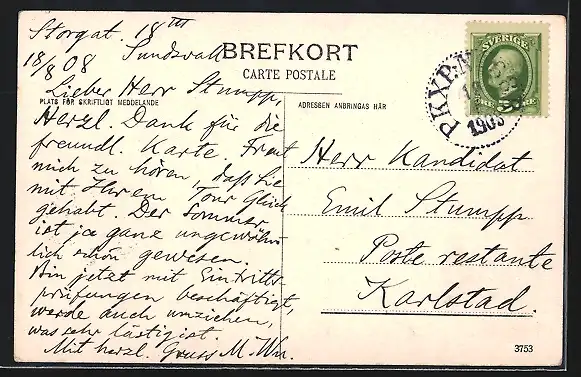 Storgat. 18 III
18/8 08 Sundsvall
BREFKORT
CARTE POSTALE
Lieber Herr Stumpp,
PLATS FÖR SKRIFTLIGT MEDDELANDE
Herzl. Dank für die
freundl. Karte. Freut
mich zu hören, daß Sie
mit Ihrem Tour Glück
gehabt. Der Sommer
ist ja ganz ungewöhn
lich schön gewesen.
Bin jetzt mit Eintritts-
prüfungen beschäftigt,
werde auch umziehen,
was sehr lästig ist.
Mit herzl. Gruss M.
SVERIGE
5
PKXP. N
1908
ADRESSEN ANBRINGAS HÄR
Herr Kandidat
Emil Stumpp
Poste restante
Karlstad.
3753